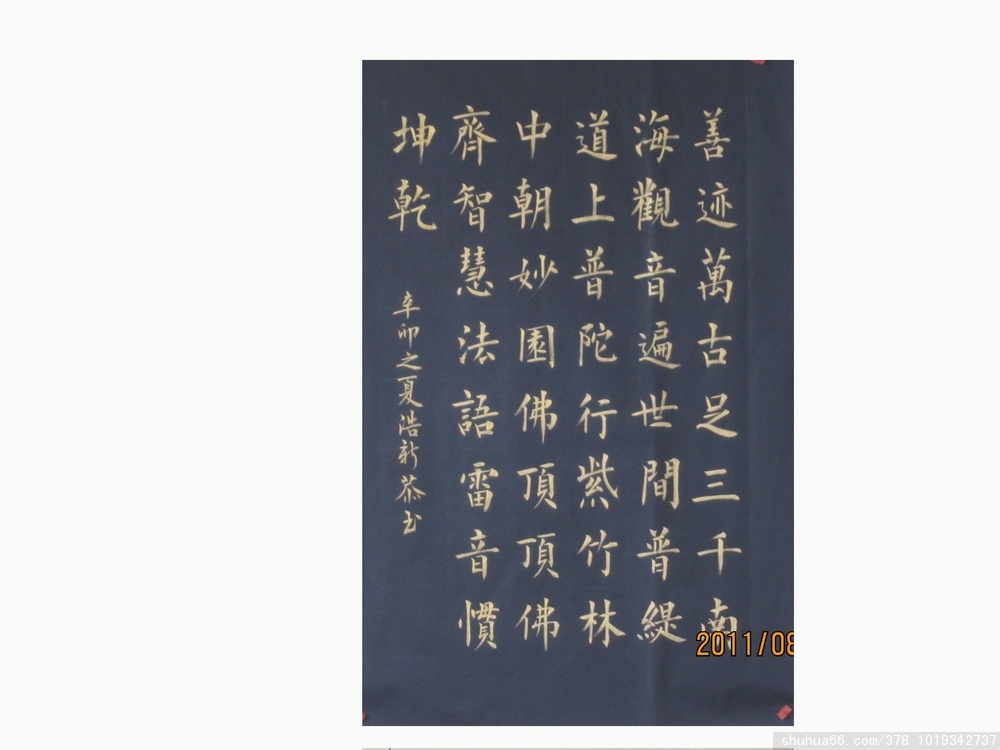 善迹萬古足三千南
海觀音遍世間普緹
道上普陀行紫竹林
中朝妙園佛頂頂佛
齊智慧法語雷音慣
坤乾
辛卯之夏浩新恭书
2011/08
shuhua66.com/378 1019342737